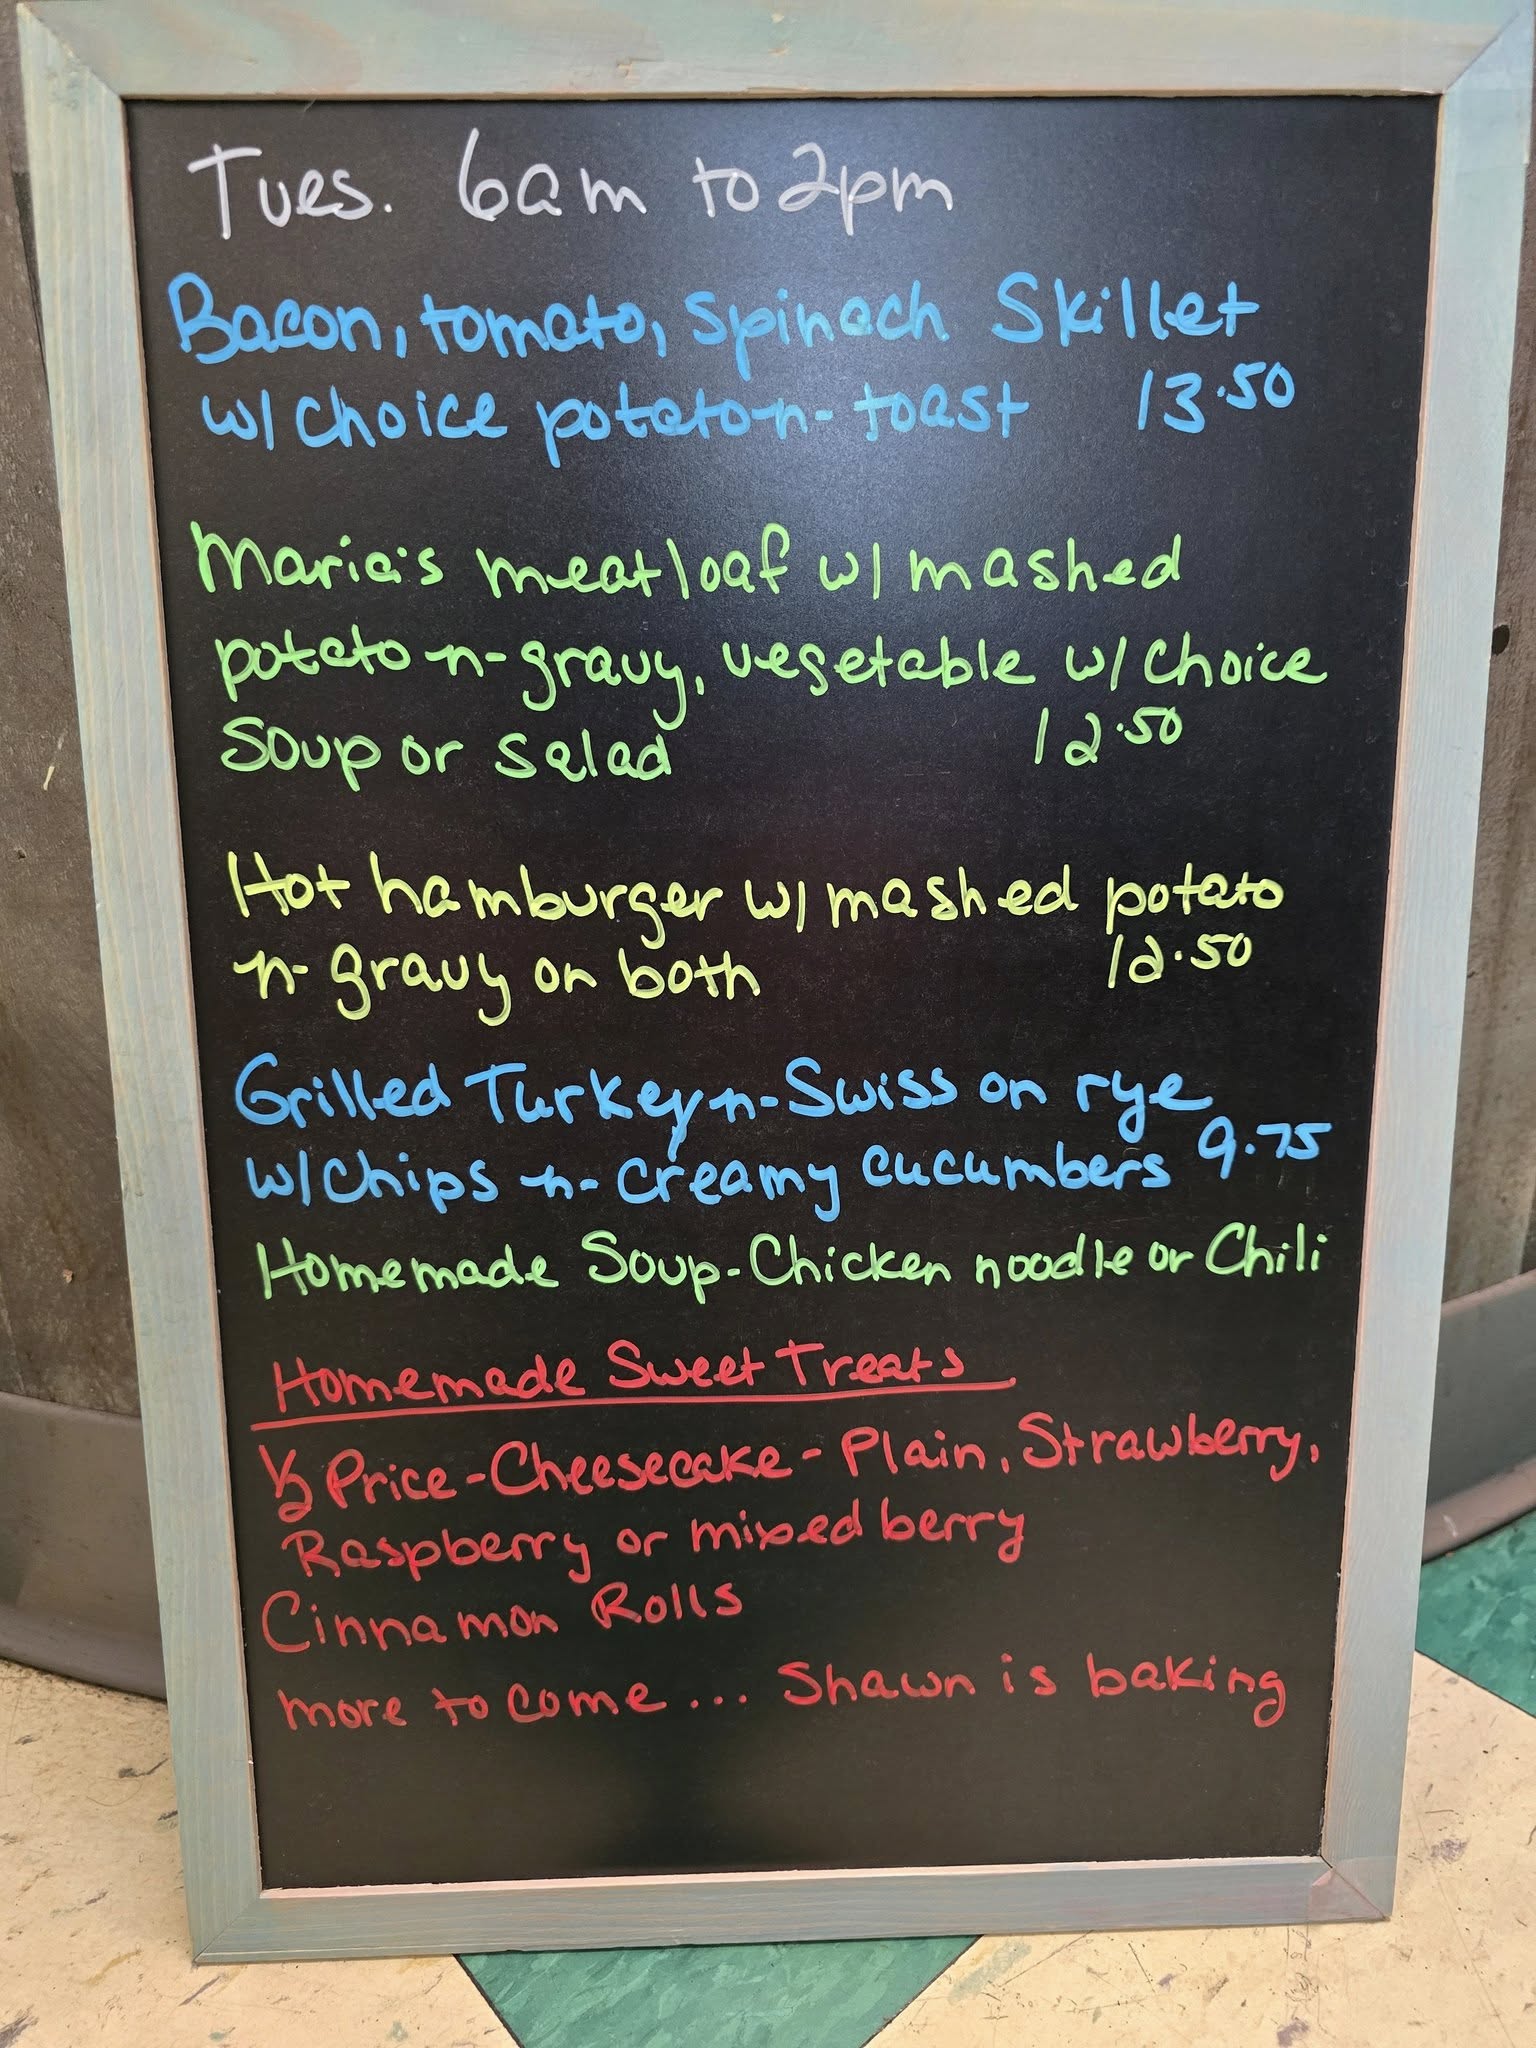 Tues. 6am to 2pm
Bacon, tomato, spinach Skillet
w/ choice potato -n- toast 13.50
Maria's meatloaf w/ mashed
potato -n- gravy, vegetable w/ choice
Soup or salad 12.50
Hot hamburger w/ mashed potato
-n- gravy on both 12.50
Grilled Turkey -n- Swiss on rye
w/ chips -n- creamy cucumbers 9.75
Homemade Soup - Chicken noodle or Chili
Homemade Sweet Treats
1/2 Price - Cheesecake - Plain, Strawberry,
Raspberry or mixed berry
Cinnamon Rolls
more to come ... Shawn is baking